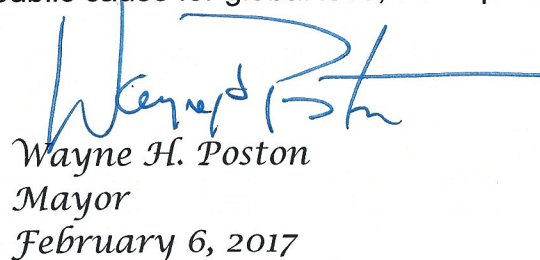 Wayne H. Poston
Wayne H. Poston
Mayor
February 6, 2017